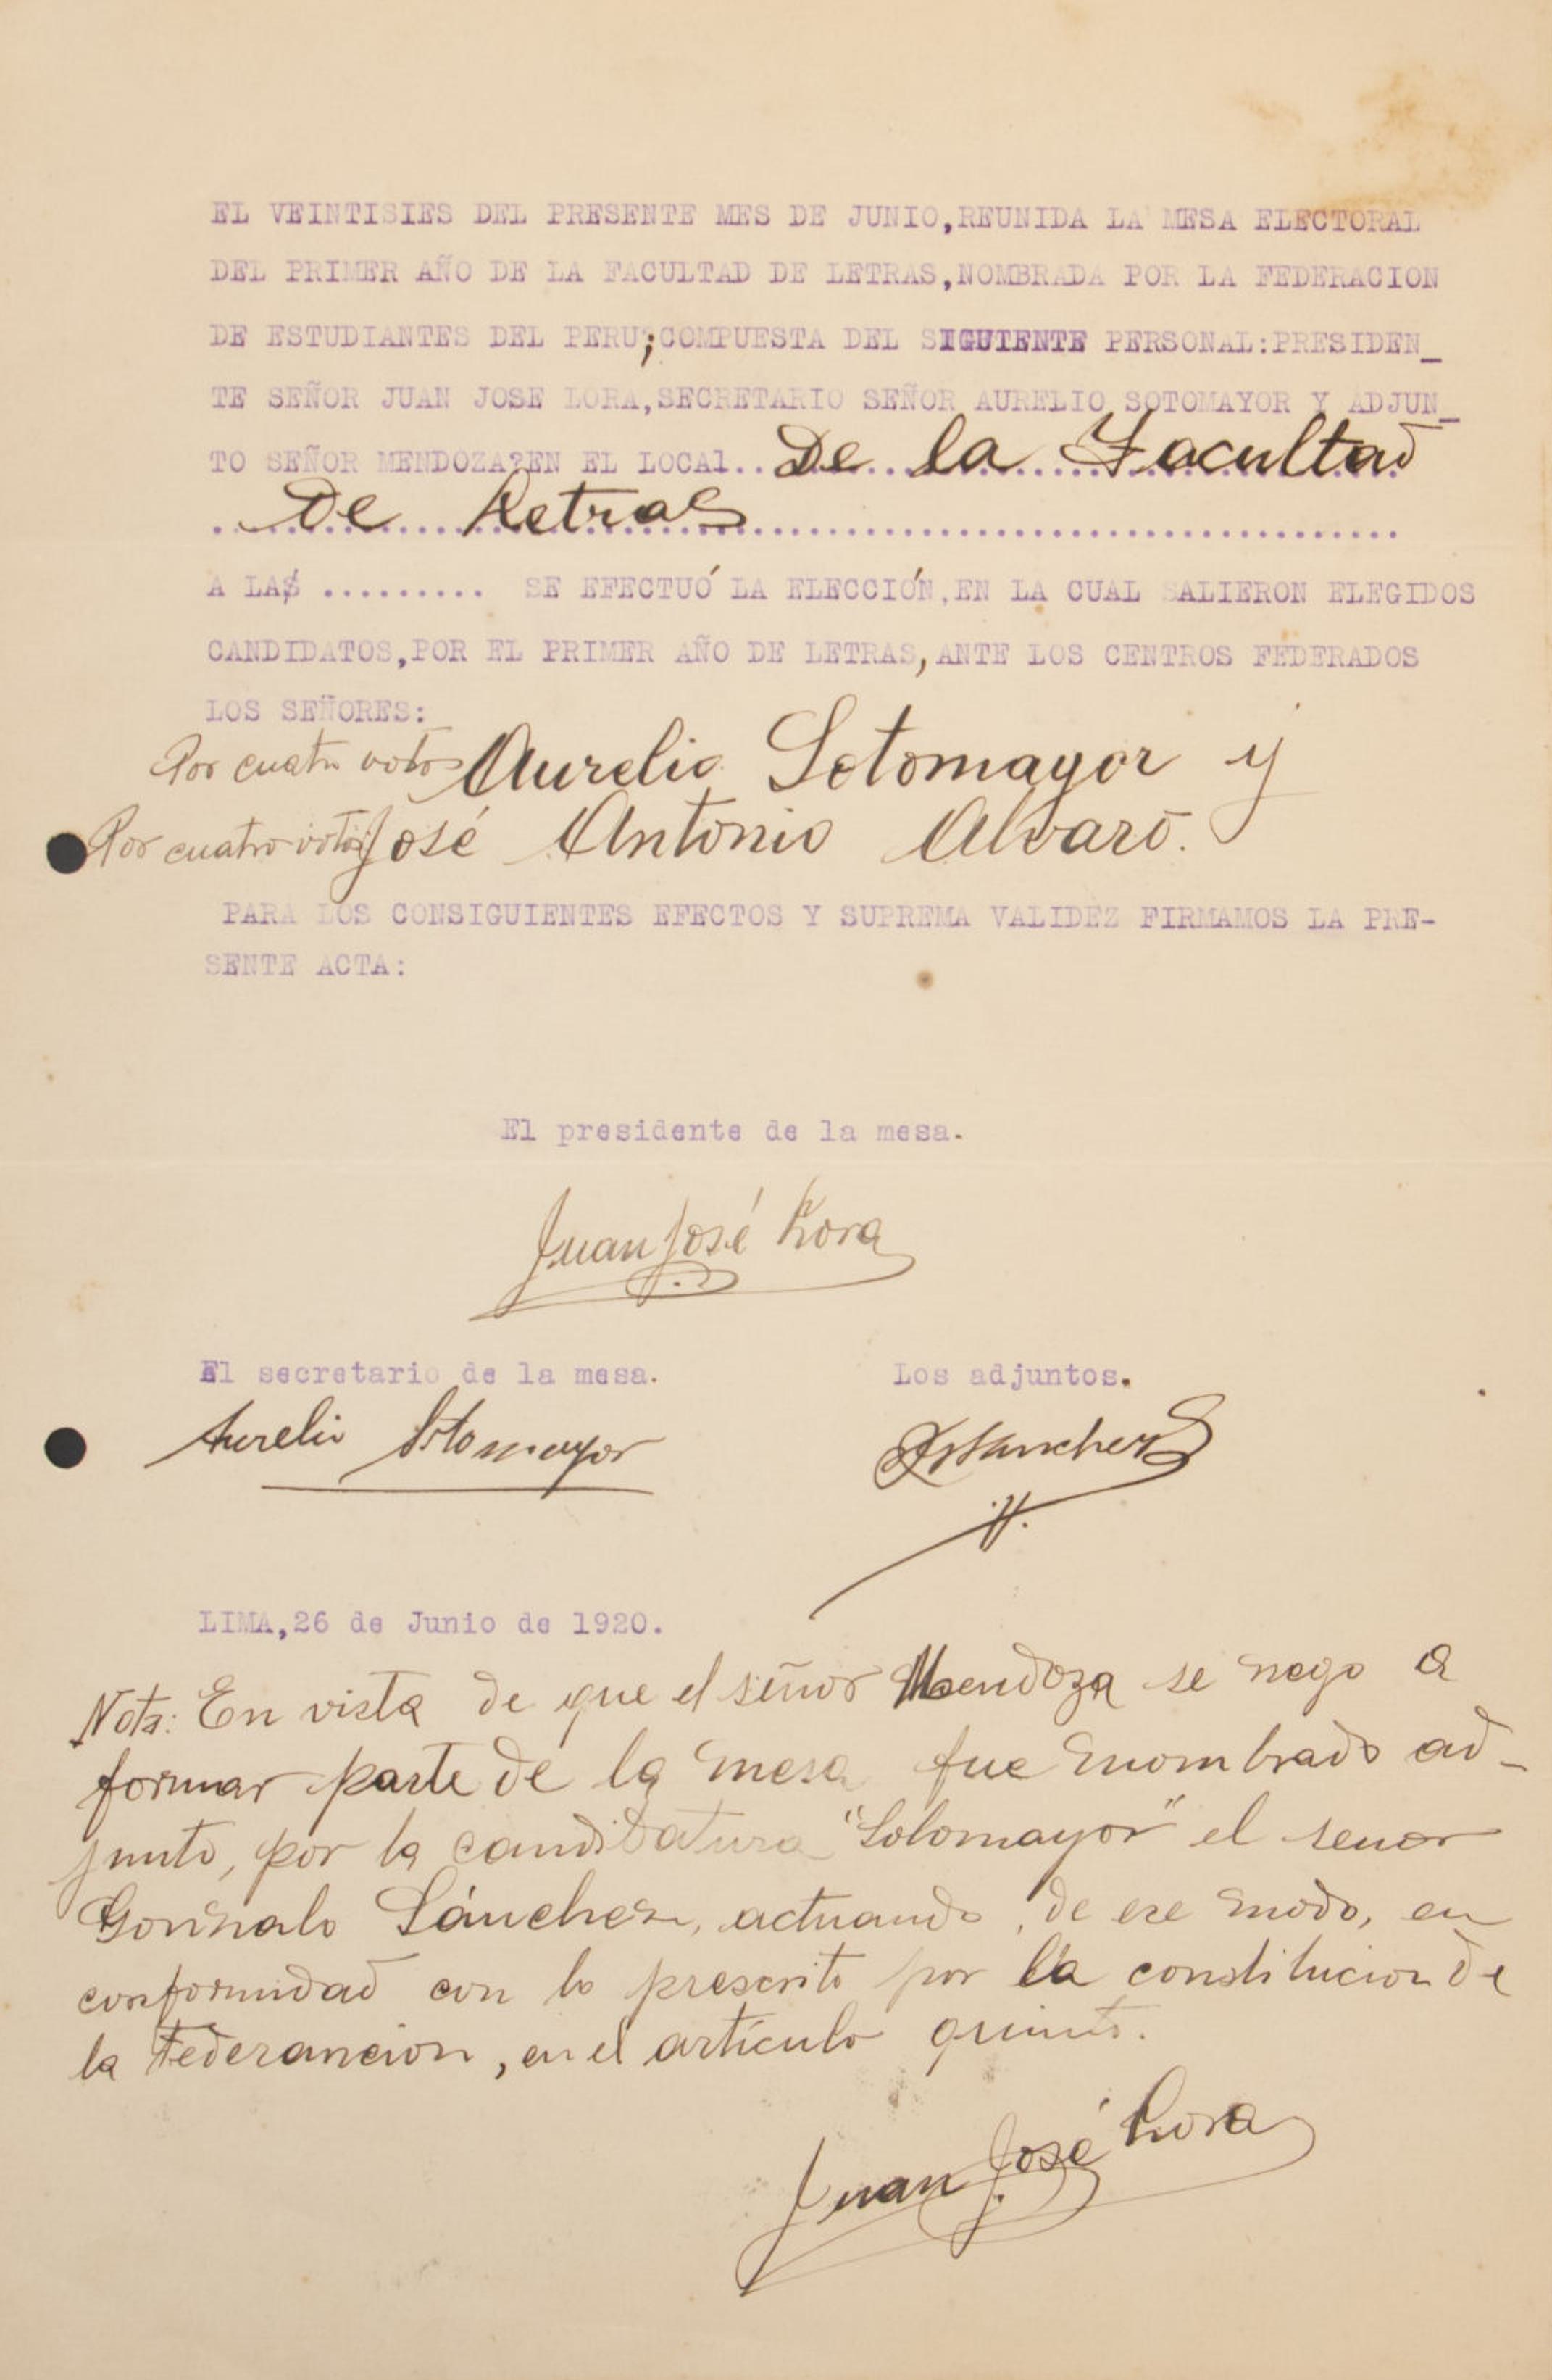 EL VEINTISIES DEL PRESENTE MES DE JUNIO,REUNIDA LA MESA ELECTORAL
DEL PRIMER AÑO DE LA FACULTAD DE LETRAS,NOMBRADA POR LA FEDERACION
DE ESTUDIANTES DEL PERU;COMPUESTA DEL SIGUTENTE PERSONAL:PRESIDEN_
TE SEÑOR JUAN JOSE LORA,SECRETARIO SEÑOR AURELIO SOTOMAYOR Y ADJUN_
TO SEÑOR MENDOZA?EN EL LOCAl.. De la Facultad
De Letras
A LAS ......... SE EFECTUÓ LA ELECCIÓN,EN LA CUAL SALIERON ELEGIDOS
CANDIDATOS,POR EL PRIMER AÑO DE LETRAS,ANTE LOS CENTROS FEDERADOS
LOS SEÑORES:
Por cuatro votos Aurelio Sotomayor y
Por cuatro votos José Antonio Alvaro.
PARA LOS CONSIGUIENTES EFECTOS Y SUPREMA VALIDEZ FIRMAMOS LA PRE-
SENTE ACTA:
El presidente de la mesa.
Juan José Lora
El secretario de la mesa. Los adjuntos.
Aurelio Sotomayor Sanchez
LIMA,26 de Junio de 1920.
Nota: En vista de que el señor Mendoza se nego a
formar parte de la mesa fue nombrado ad-
junto, por la candidatura "Sotomayor" el señor
Gonsalo Sánchez, actuando, de ese modo, en
conformidad con lo prescrito por la constitucion de
la Federancion, en el artículo quinto.
Juan José Lora